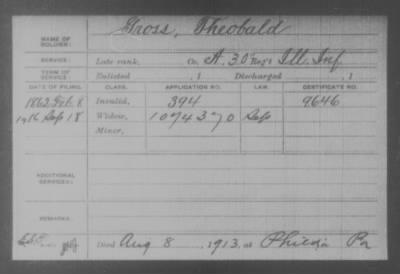 NAME OF SOLDIER: Gross, Theobald
SERVICE: Late rank, Co. A. 30 Reg't Ill. Inf.
TERM OF SERVICE: Enlisted , 1 Discharged , 1
DATE OF FILING. CLASS. APPLICATION NO. LAW. CERTIFICATE NO.
1862 8 Invalid, 394 9646
1916 Sep 18 Widow, 1074370 Sep
Minor,
ADDITIONAL SERVICES:
REMARKS:
Died Aug 8, 1913, at Phila Pa